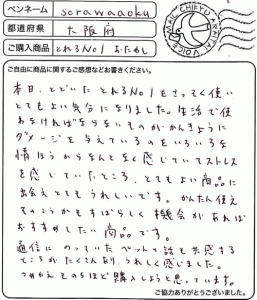 ペンネーム sorawaaoku
都道府県 大阪府
ご購入商品 とれるNo1 おためし
MAIL CHIKYU-ARAITAI VOICE
ご自由に商品に関するご感想などお書きください。
本日、とどいた とれるNo1をさっそく使い
とてもよい気分になりました。生活で使
わなければならないものがかんきょうに
ダメージを与えているのをいろいろな
情ほうからなんとなく感じていてストレス
を感じていたところ、とてもよい商品に
出会えとてもうれしいです。かんたん使え
そのこうかもすばらしく 機会があれば
おすすめしたい商品です。
通信にのっていたペットの話も共感する
ところがたくさんあり、うれしく感じました。
つかがえそのうちほど購入しようと思っています。
ご協力ありがとうございました。